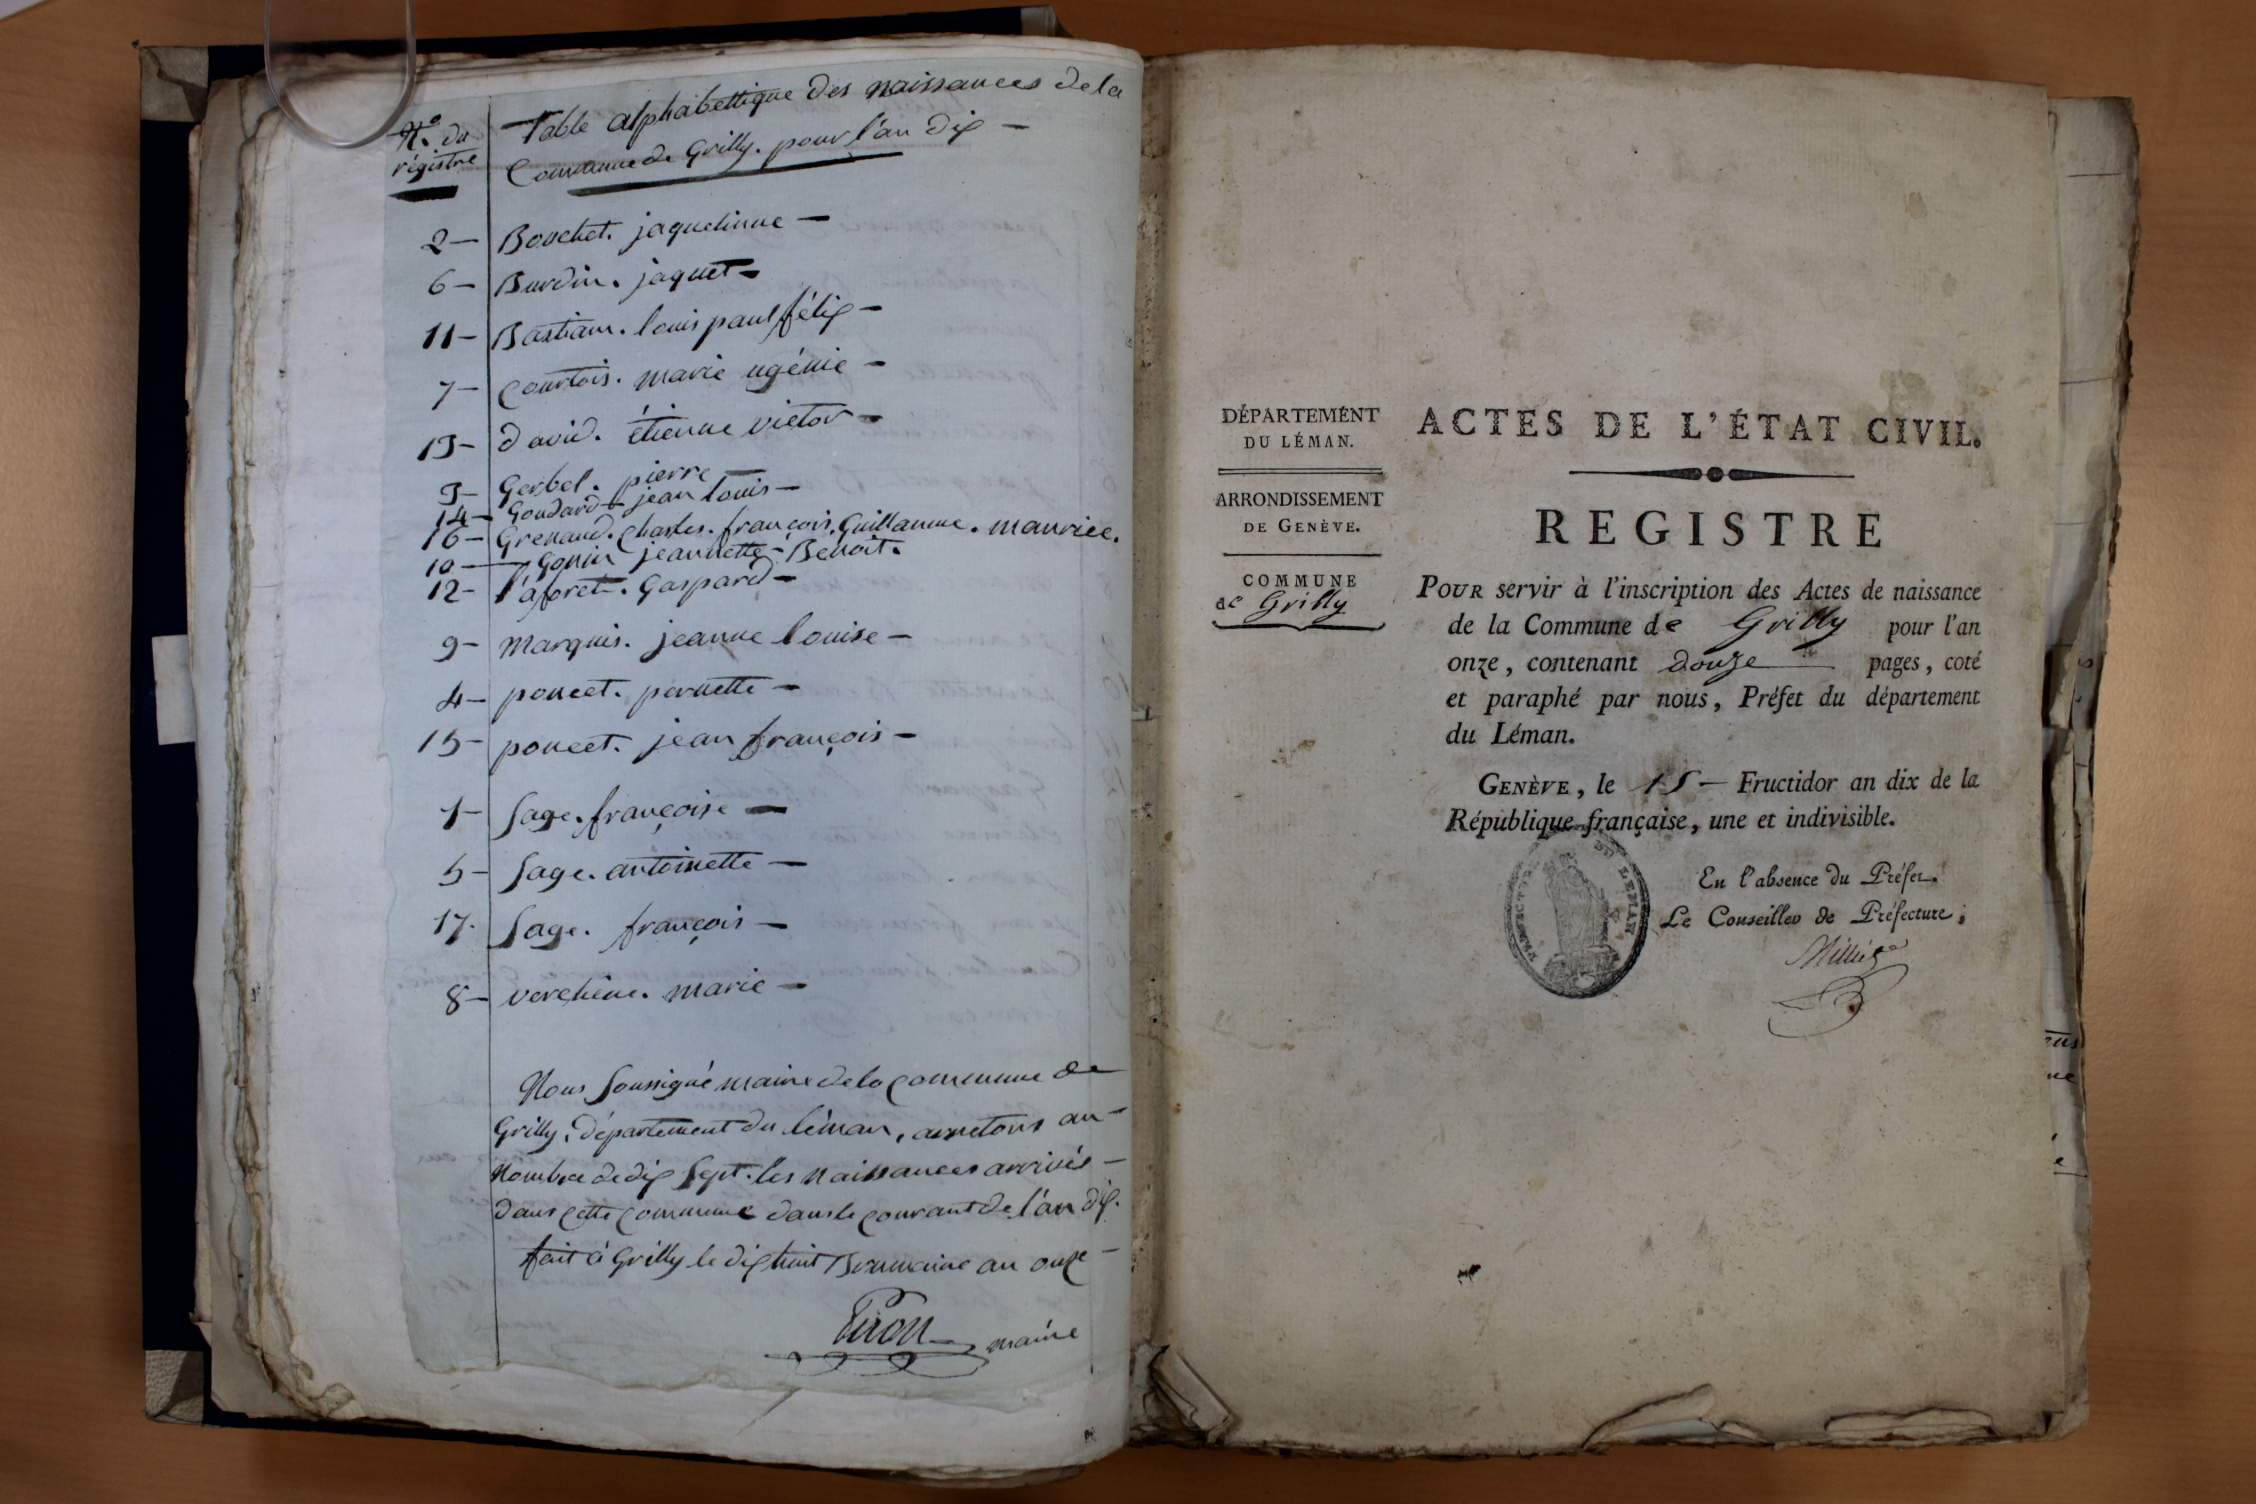 N.º du
régistre
Table alphabettique des naissances de la
Commune de Grilly. pour l'an dix —
2 — Bouchet. jaquelinne —
6 — Burdin. jaquet —
11 — Bastian. louis paul félix —
7 — Courtois. marie ugénie —
13 — david. étienne victor —
3 — Gerbel. pierre
14 — Goudard — jean louis —
16 — Grenaud. Charles. françois. Guillaume. maurice.
10 — Gonin jeannette — Benoit.
12 — l'aforet. Gaspard —
9 — marquis. jeanne louise —
4 — poncet. pernette —
15 — poncet. jean françois —
1 — Sage. françoise —
5 — Sage. antoinette —
17. Sage. françois —
8 — verchène. marie —
Nous Soussigné maire de la commune de
Grilly, département du léman, arretons au
nombre de dix sept. les naissances arrivés —
dans cette commune dans le courant de l'an dix.
fait à Grilly le dix huit Brumaire an onze —
Piron maire
DÉPARTEMENT
DU LÉMAN.
ARRONDISSEMENT
DE GENÈVE.
COMMUNE
de Grilly
ACTES DE L'ÉTAT CIVIL.
REGISTRE
POUR servir à l'inscription des Actes de naissance
de la Commune de Grilly pour l'an
onze, contenant douze pages, coté
et paraphé par nous, Préfet du département
du Léman.
GENÈVE, le 15 — Fructidor an dix de la
République française, une et indivisible.
PRÉFECTURE DU LÉMAN
En l'absence du Préfet.
Le Conseiller de Préfecture;